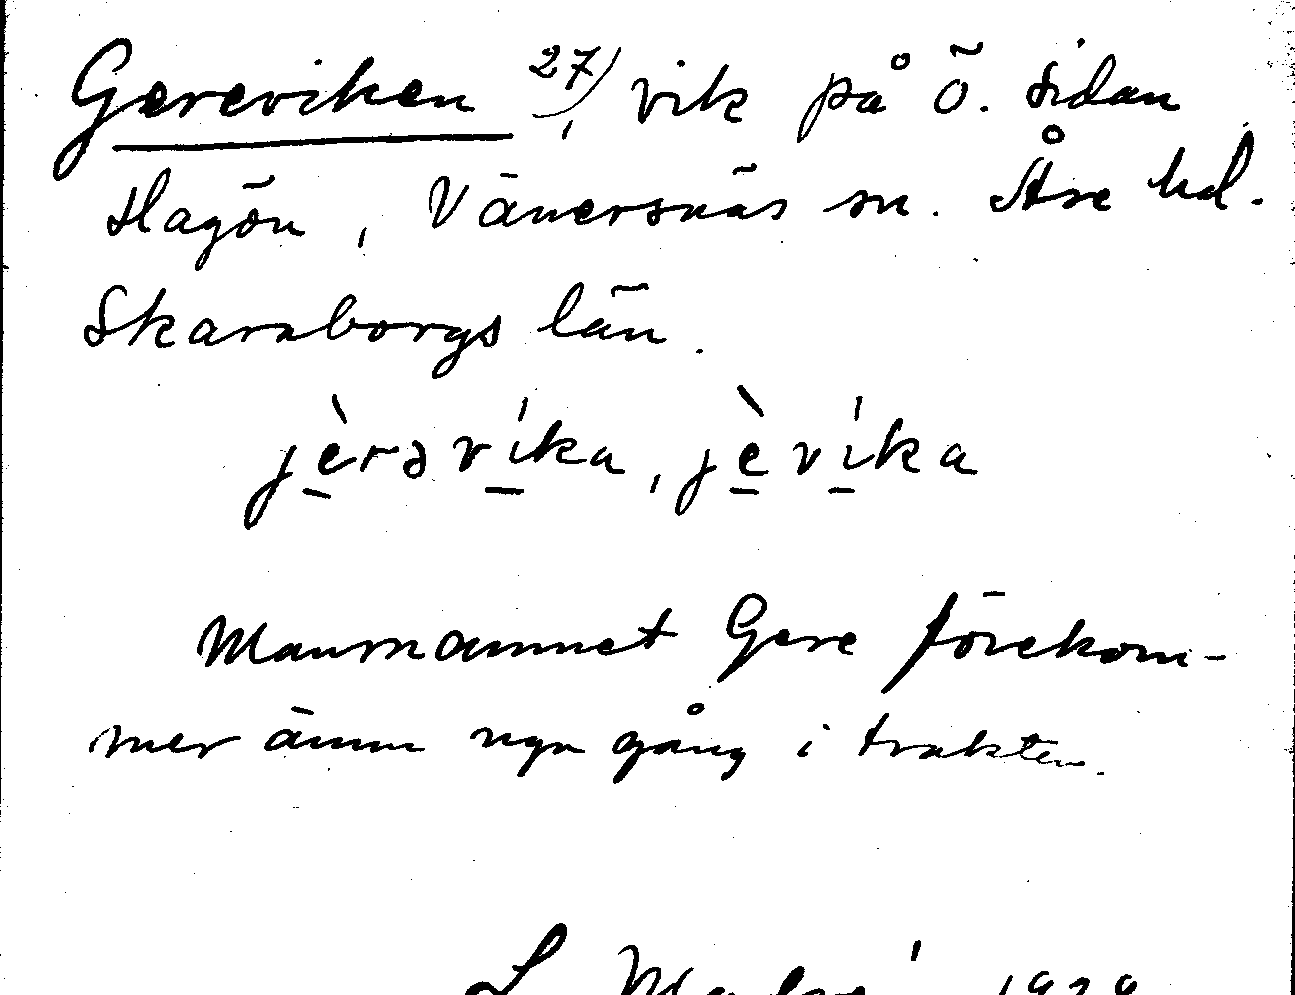 Gereviken 27), vik på ö. sidan
Hagön, Vänersnäs sn. Åse hd.
Skaraborgs län.
jèrəvíka, jèvíka
Mansnamnet Gere förekom-
mer ännu ngn gång i trakten.